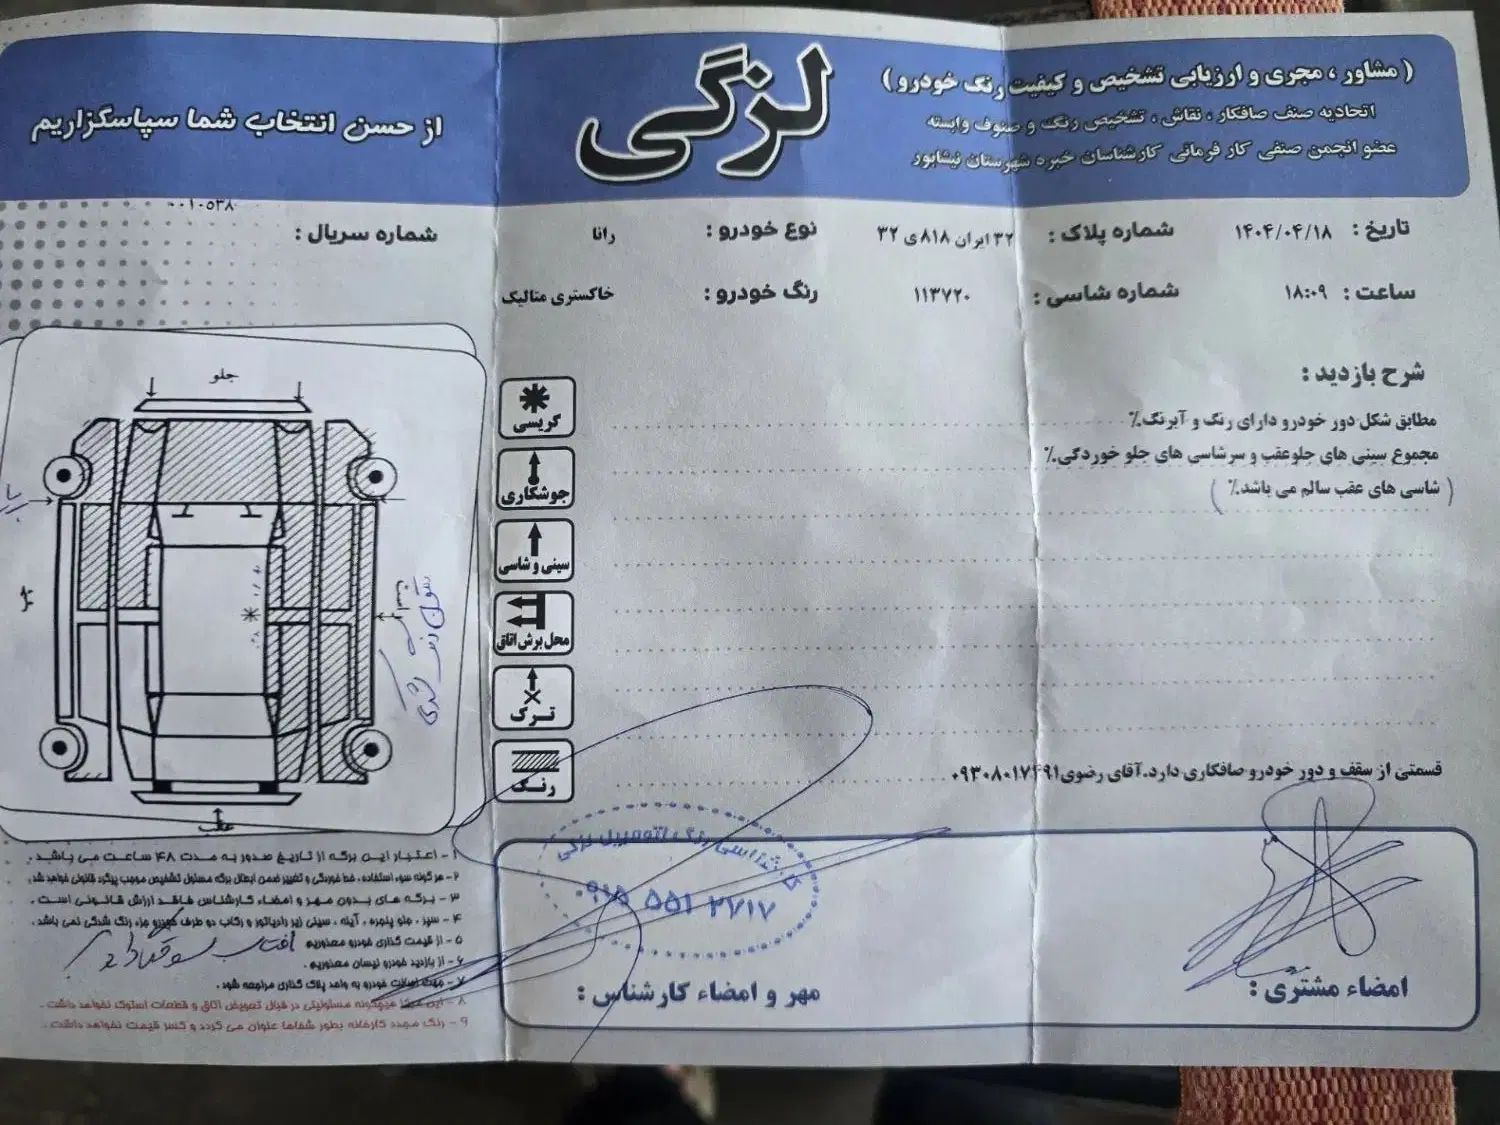 ( مشاور ، مجری و ارزیابی تشخیص و کیفیت رنگ خودرو )
اتحادیه صنف صافکار ، نقاش ، تشخیص رنگ و صنوف وابسته
عضو انجمن صنفی کار فرمانی کارشناسان خبره شهرستان نیشابور
لزگی
از حسن انتخاب شما سپاسگزاریم
تاریخ : ۱۴۰۴/۰۴/۱۸
شماره پلاک : ۳۲ ایران ۸۱۸ ی ۳۲
نوع خودرو : رانا
شماره سریال : ۰۰۱۰۵۳۸
ساعت : ۱۸:۰۹
شماره شاسی : ۱۱۳۷۲۰
رنگ خودرو : خاکستری متالیک
شرح بازدید :
مطابق شکل دور خودرو دارای رنگ و آبرنگ.٪
مجموع سینی های جلوعقب و سرشاسی های جلو خوردگی.٪
( شاسی های عقب سالم می باشد.٪ )
قسمتی از سقف و دور خودرو صافکاری دارد.آقای رضوی۰۹۳۰۸۰۱۷۴۹۱
گریسی
جوشکاری
سینی و شاسی
محل برش اتاق
ترک
رنگ
جلو
راست
عقب
۱- اعتبار این برگه از تاریخ صدور به مدت ۴۸ ساعت می باشد .
۲- هر گونه سوء استفاده ، خط خوردگی و تغییر ضمن ابطال برگه مسئول تشخیص موجب پیگرد قانونی خواهد شد .
۳- برگه های بدون مهر و امضاء کارشناس فاقد ارزش قانونی است .
۴- سپر ، جلو پنجره ، آینه ، سینی زیر رادیاتور و رکاب دو طرف جزء رنگ شدگی نمی باشد .
۵- از قیمت گذاری خودرو معذوریم
آفتاب سوختگی دارد
۶- از بازدید خودرو نیسان معذوریم .
۷- جهت اصالت خودرو به واحد پلاک گذاری مراجعه شود .
۸- این مرکز هیچگونه مسئولیتی در قبال تعویض اتاق و قطعات استوک نخواهد داشت .
۹- رنگ مجدد کارخانه بطور شفاها عنوان می گردد و کسر قیمت نخواهد داشت .
کارشناسی رنگ اتومبیل لزگی
۰۹۱۵ ۵۵۱ ۲۷۱۷
مهر و امضاء کارشناس :
امضاء مشتری :